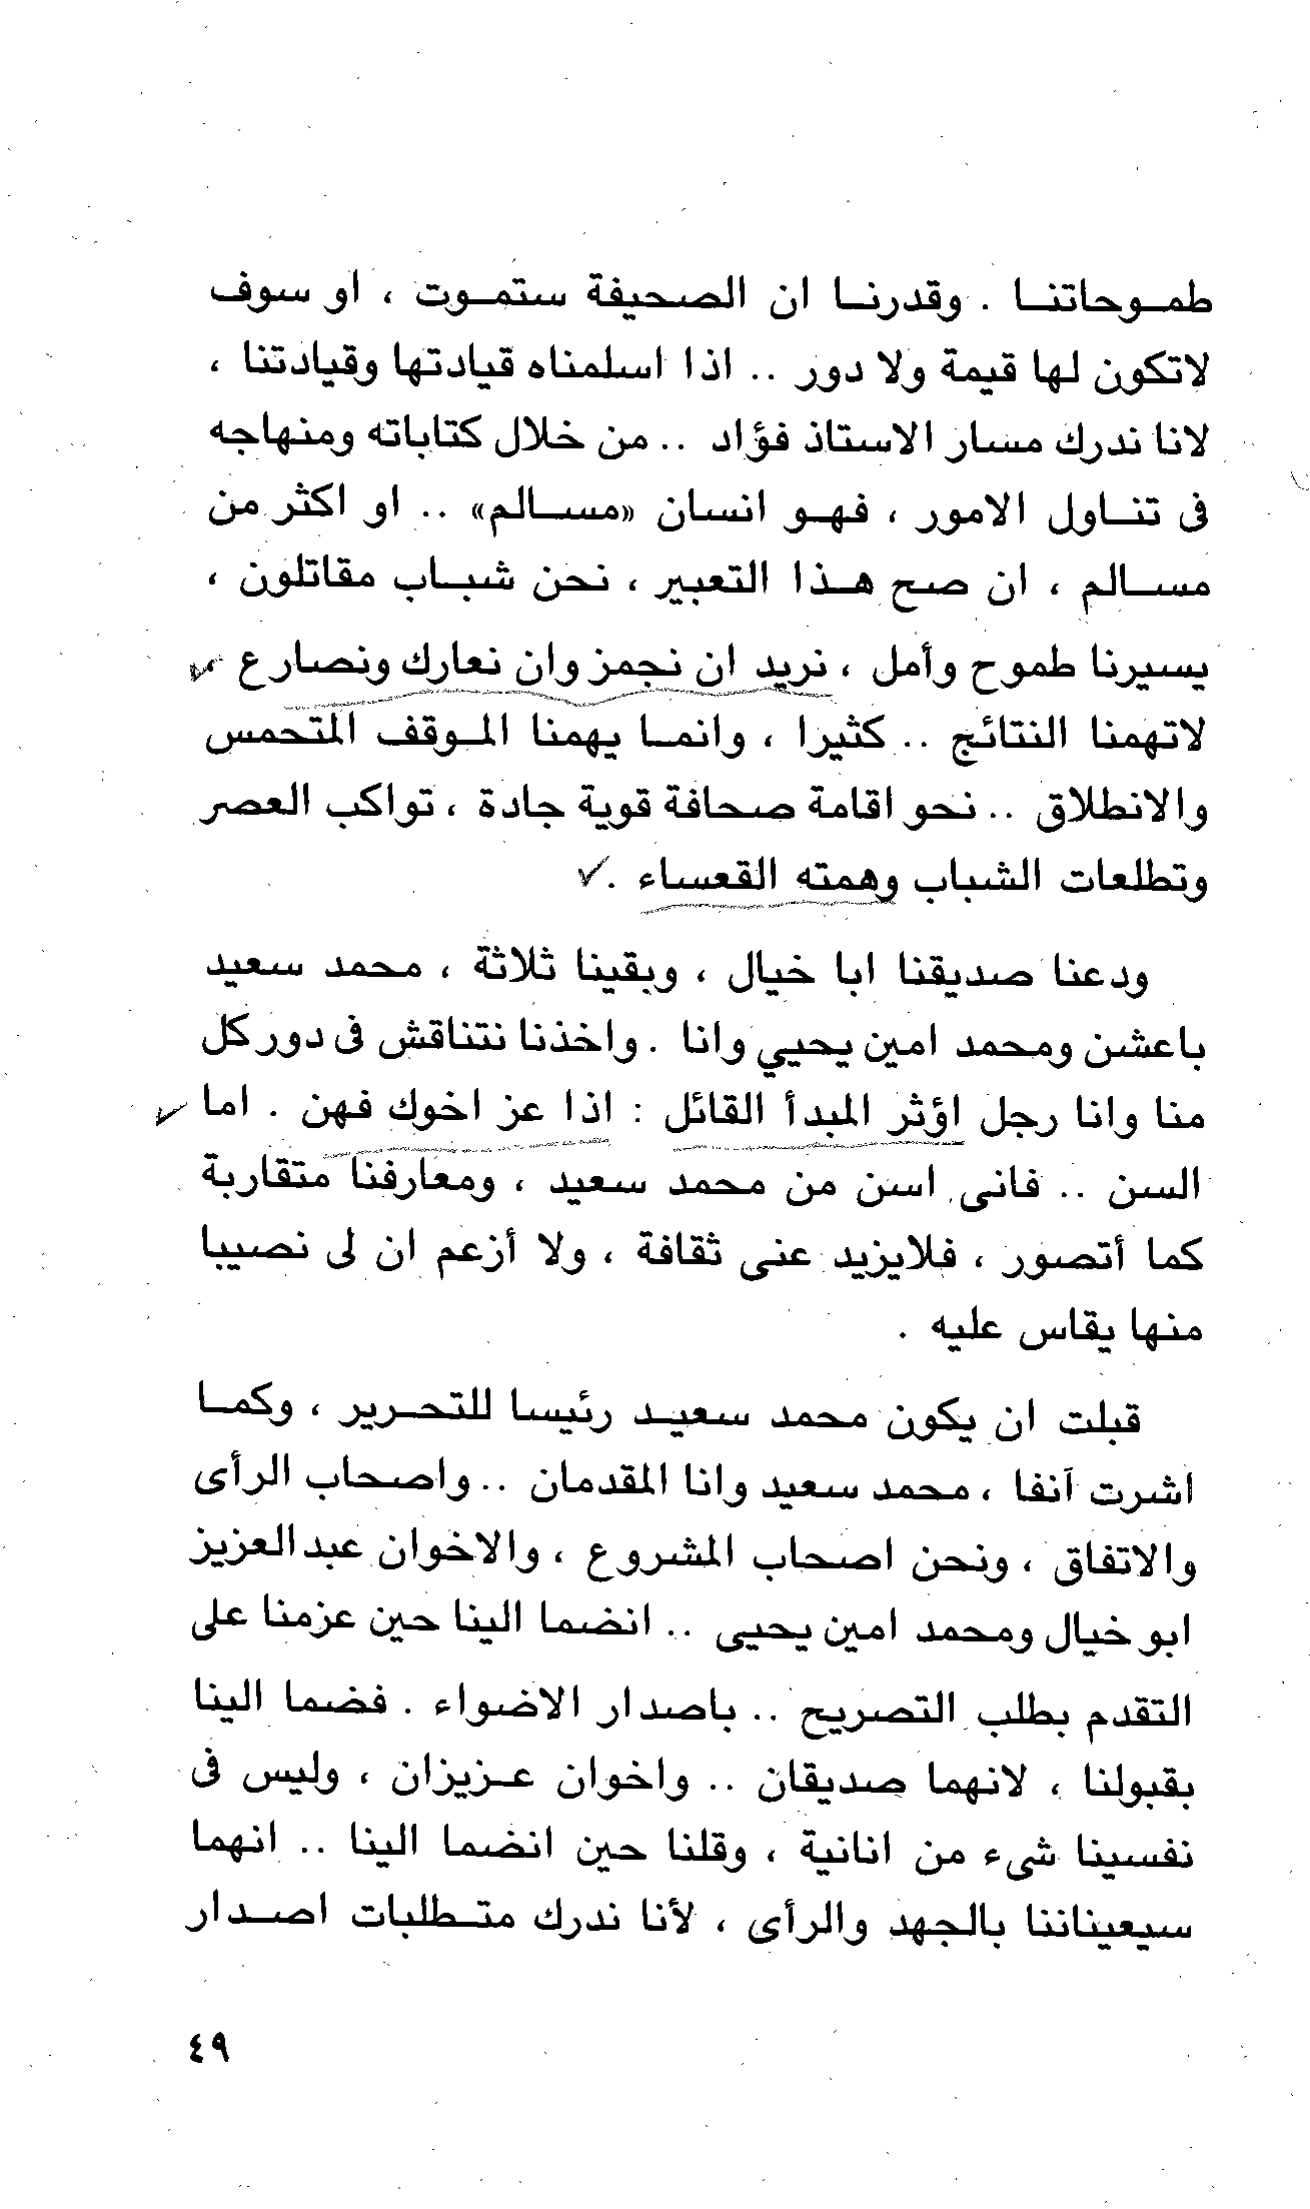 طموحاتنا . وقدرنا ان الصحيفة ستموت ، او سوف
لاتكون لها قيمة ولا دور .. اذا اسلمناه قيادتها وقيادتنا ،
لانا ندرك مسار الاستاذ فؤاد .. من خلال كتاباته ومنهاجه
فى تناول الامور ، فهو انسان «مسالم» .. او اكثر من
مسالم ، ان صح هذا التعبير ، نحن شباب مقاتلون ،
يسيرنا طموح وأمل ، نريد ان نجمز وان نعارك ونصارع
لاتهمنا النتائج .. كثيرا ، وانما يهمنا الموقف المتحمس
والانطلاق .. نحو اقامة صحافة قوية جادة ، تواكب العصر
وتطلعات الشباب وهمته القعساء .
ودعنا صديقنا ابا خيال ، وبقينا ثلاثة ، محمد سعيد
باعشن ومحمد امين يحيي وانا . واخذنا نتناقش فى دور كل
منا وانا رجل اؤثر المبدأ القائل : اذا عز اخوك فهن . اما
السن .. فانى اسن من محمد سعيد ، ومعارفنا متقاربة
كما أتصور ، فلايزيد عنى ثقافة ، ولا أزعم ان لى نصيبا
منها يقاس عليه .
قبلت ان يكون محمد سعيد رئيسا للتحرير ، وكما
اشرت آنفا ، محمد سعيد وانا المقدمان .. واصحاب الرأى
والاتفاق ، ونحن اصحاب المشروع ، والاخوان عبدالعزيز
ابو خيال ومحمد امين يحيى .. انضما الينا حين عزمنا على
التقدم بطلب التصريح .. باصدار الاضواء . فضما الينا
بقبولنا ، لانهما صديقان .. واخوان عزيزان ، وليس فى
نفسينا شىء من انانية ، وقلنا حين انضما الينا .. انهما
سيعيناننا بالجهد والرأى ، لأنا ندرك متطلبات اصدار
٤٩